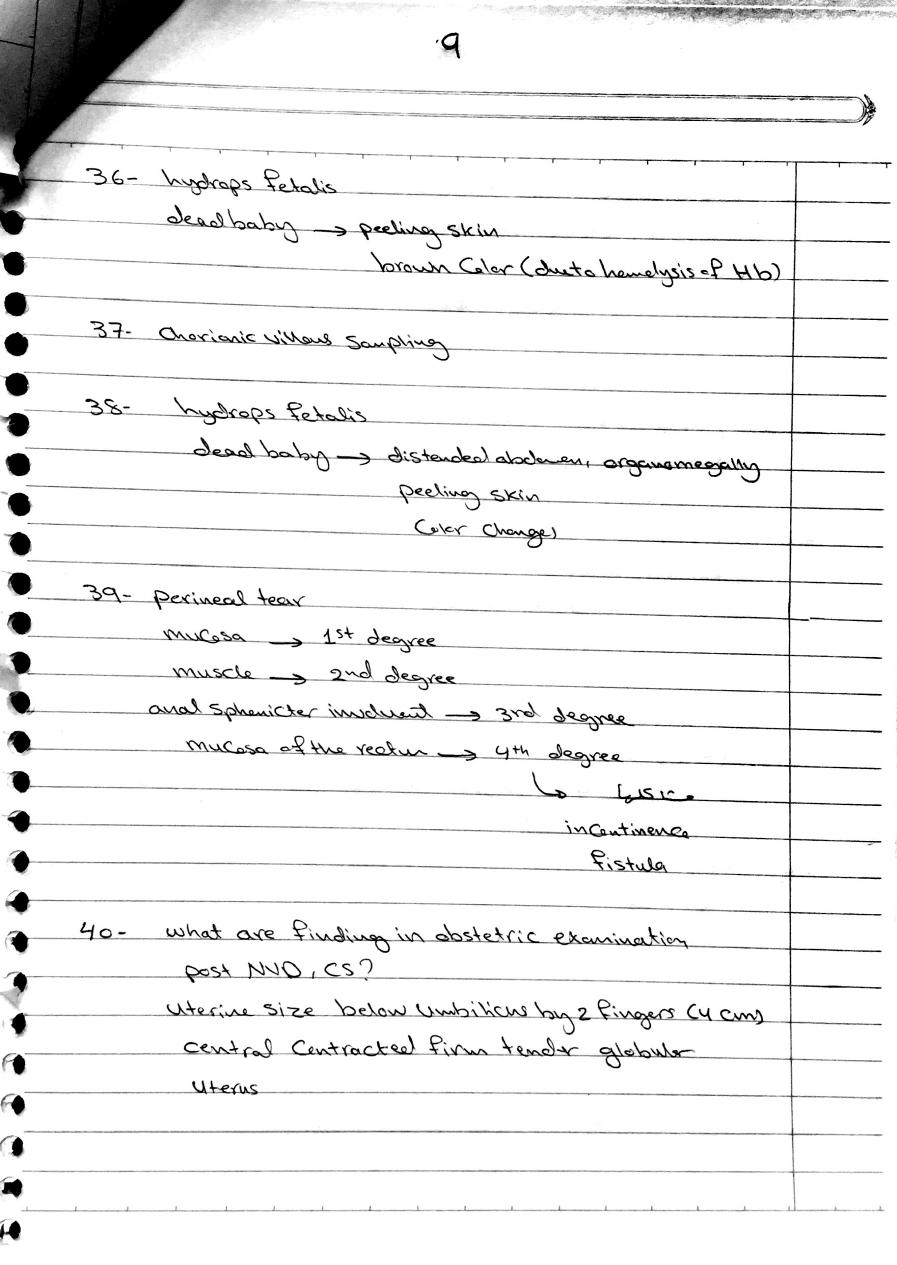 9
36- hydrops fetalis
dead baby → peeling skin
brown Color (due to hemolysis of Hb)
37- Chorionic villous Sampling
38- hydrops fetalis
dead baby → distended abdomen, organomegally
peeling skin
Color Changes
39- perineal tear
mucosa → 1st degree
muscle → 2nd degree
anal sphenicter involvent → 3rd degree
mucosa of the rectum → 4th degree
↳
incontinence
fistula
40- what are finding in obstetric examination
post NVD, CS?
uterine size below umbilicus by 2 fingers (4 cm)
central Contracted firm tender globular
uterus